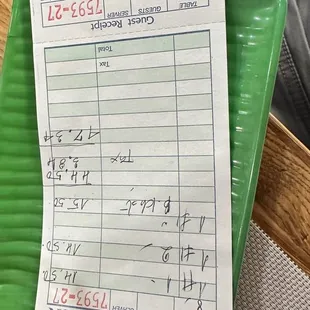 SERVER
7593-27
1 #1 14.50
1 #2 14.50
1 15.50
44.50
Tax 3.84
47.34
Tax
Total
Guest Receipt
TABLE GUESTS SERVER
7593-27